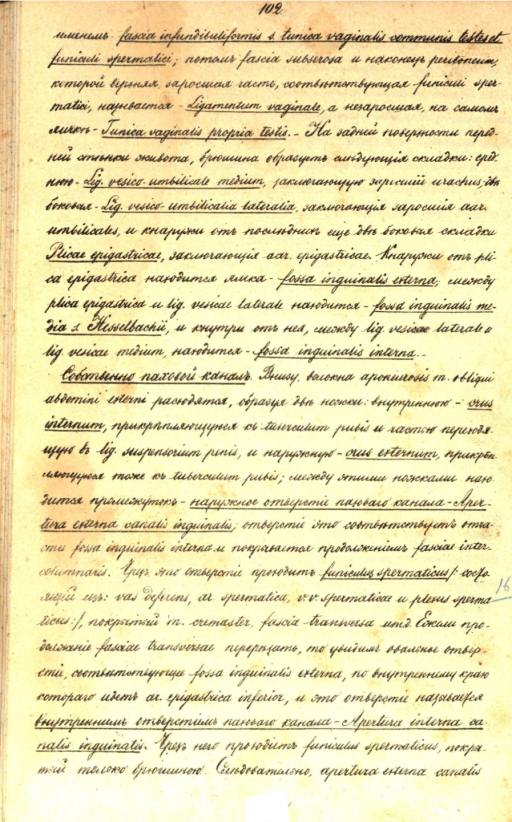 102
именемъ fascia infundibuliformis s. tunica vaginalis communis testis et
funiculi spermatici; потомъ fascia subserosa и наконецъ peritoneum,
которой верхняя заросшая часть, соотвѣтствующая funiculi sper-
matici, называется - Ligamentum vaginale, а незаросшая, на самомъ
яичкѣ - Tunica vaginalis propria testis. - На задней поверхности перед-
ней стѣнки живота, брюшина образуетъ слѣдующія складки: сред-
нюю - Lig. vesico-umbilicale medium, заключающую заросшій urachus, двѣ
боковыя - Lig. vesico-umbilicalia lateralia, заключающія заросшія aar.
umbilicales, и кнаружи отъ послѣднихъ еще двѣ боковыя складки
Plicae epigastricae, заключающія aar. epigastricae. Кнаружи отъ pli-
ca epigastrica находится ямка - fossa inguinalis externa; между
plica epigastrica и lig. vesicae laterale находится - fossa inguinalis me-
dia s. Hesselbachii, и кнутри отъ нея, между lig. vesicae laterale и
lig. vesicae medium, находится - fossa inguinalis interna. -
Собственно паховой каналъ. Внизу волокна apon m. obliqui
abdomini externi расходятся, образуя двѣ ножки: внутреннюю - crus
internum, прикрѣпляющуюся къ tuberculum pubis и частью переходя-
щую въ lig. suspensorium penis, и наружную - crus externum, прикрѣп-
ляющуюся тоже къ tuberculum pubis; между этими ножками нахо-
дится промежутокъ - наружное отверстіе паховаго канала - Aper-
tura externa canalis inguinalis; отверстіе это соотвѣтствуетъ отча-
сти fossa inguinalis interna и покрывается продолженіемъ fasciae inter-
columnaris. Чрезъ это отверстіе проходитъ funiculus spermaticus /: состо-
ящій изъ: vas deferens, ar. spermatica, v.v. spermaticae и plexus sperma-
ticus :/, покрытый m. cremaster, fascia transversa итд. Ежели про-
долженіе fasciae transversae перерѣзать, то увидимъ овальное отвер-
стіе, соотвѣтствующее fossa inguinalis externa, по внутреннему краю
котораго идетъ ar. epigastrica inferior, и это отверстіе называется
внутреннимъ отверстіемъ паховаго канала - Apertura interna ca-
nalis inguinalis. Чрезъ него проходитъ funiculus spermaticus, покры-
тый только брюшиною. Слѣдовательно, apertura externa canalis
16